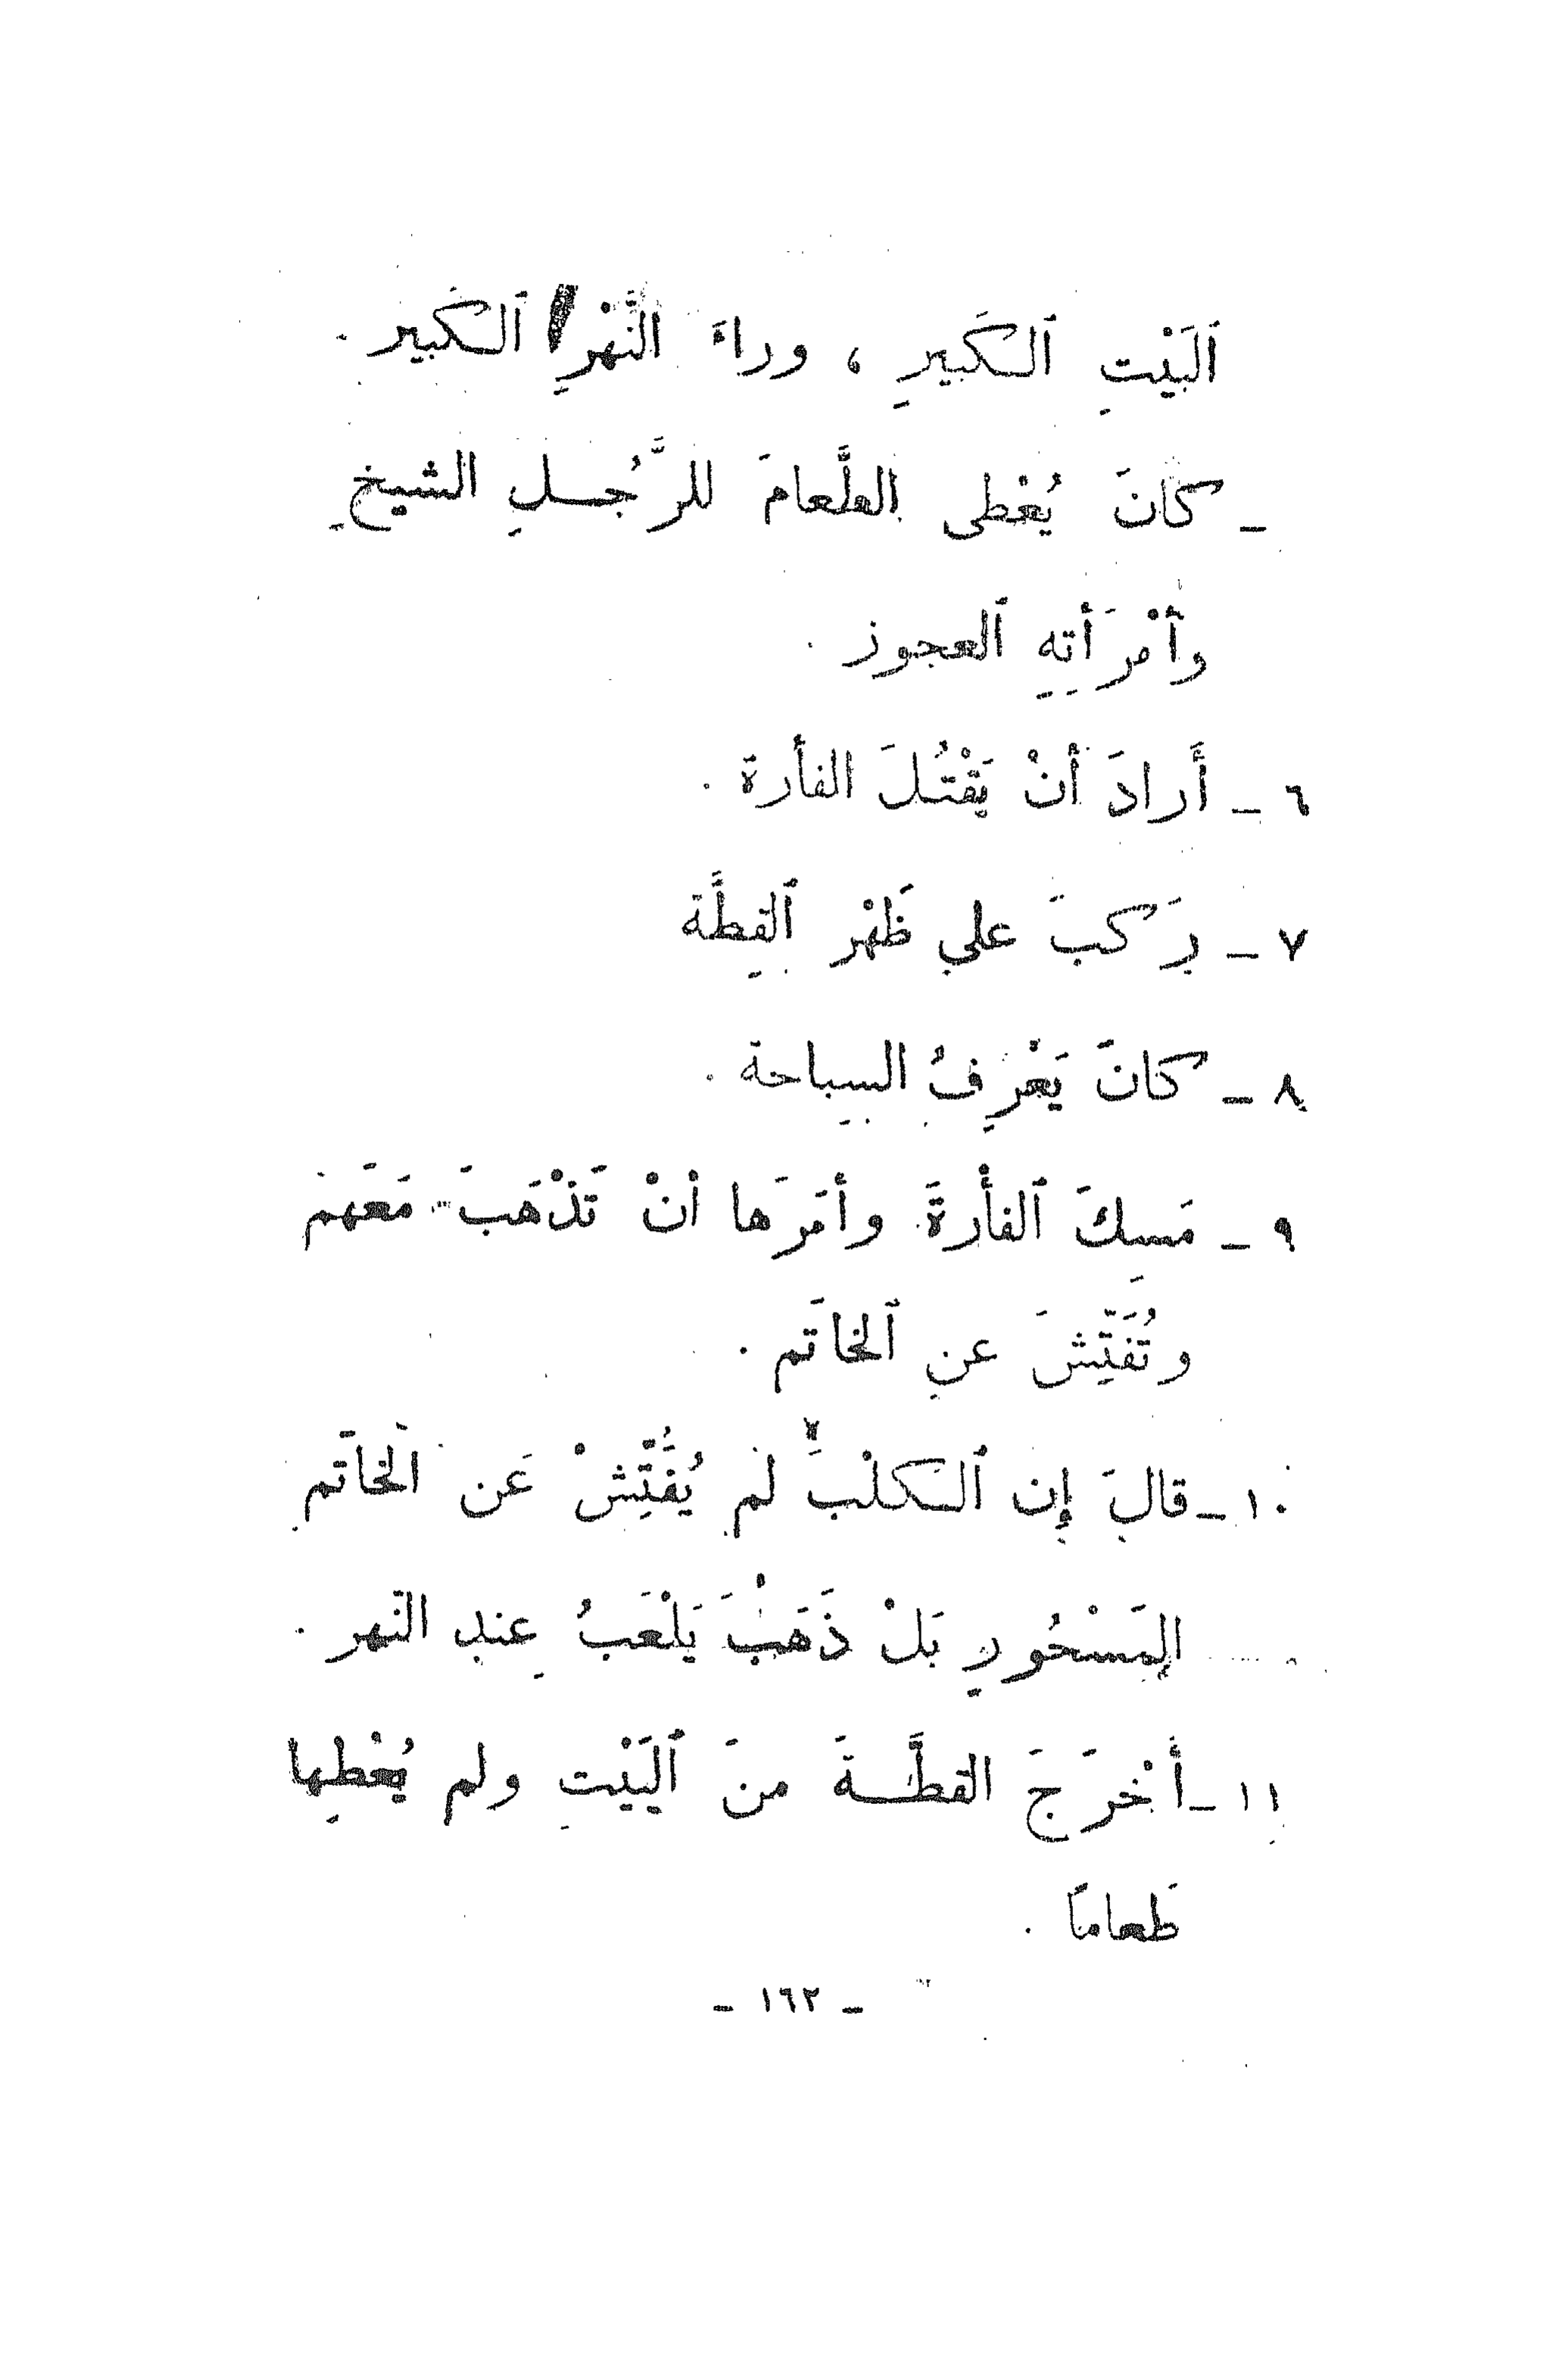 ٱلبَيْتِ ٱلكَبيرِ ، وراءَ النَّهْرِ ٱلكَبير .
ـ كانَ يُعْطى الطَّعامَ للرَّجُلِ الشيخِ
وأمْرَأتِهِ ٱلعجوز .
٦ ـ أَرادَ أنْ يَقْتُلَ الفأرة .
٧ ـ رَكِبَ على ظَهْر ٱلقِطَّة
٨ ـ كانَ يَعْرِفُ السِباحة .
٩ ـ مَسِكَ ٱلفأْرةَ وأمَرَها انْ تَذْهَبَ مَعَهم
وتُفَتِّشَ عنِ ٱلخاتَم .
١٠ ـ قالَ إِن ٱلكَلْبَ لَم يُفَتِّشْ عَن الخاتَم
المَسْحُورِ بَلْ ذَهَبَ يَلْعَبُ عِند النّهر .
١١ ـ أَخْرَجَ القطَّـةَ منَ ٱلبَيْتِ ولم يُعْطِها
طَعاماً .
ـ ١٦٢ ـ